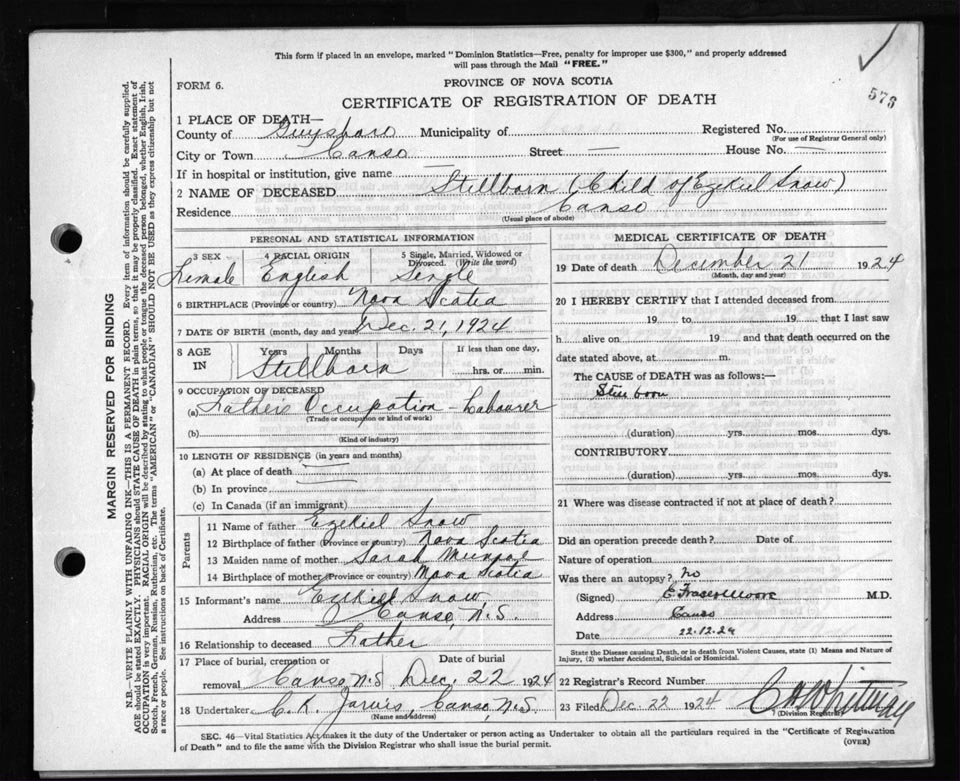 This form if placed in an envelope, marked "Dominion Statistics—Free, penalty for improper use $300," and properly addressed
will pass through the Mail "FREE."
FORM 6.
PROVINCE OF NOVA SCOTIA
573
CERTIFICATE OF REGISTRATION OF DEATH
1 PLACE OF DEATH—
County of Guysboro Municipality of Registered No.
(For use of Registrar General only)
City or Town Canso Street — House No. —
If in hospital or institution, give name —
2 NAME OF DECEASED Stillborn (Child of Ezekiel Snow)
Residence Canso
(Usual place of abode)
PERSONAL AND STATISTICAL INFORMATION
3 SEX 4 RACIAL ORIGIN 5 Single, Married, Widowed or
Divorced. (Write the word)
Female English Single
6 BIRTHPLACE (Province or country) Nova Scotia
7 DATE OF BIRTH (month, day and year) Dec. 21, 1924
8 AGE IN Years Months Days If less than one day,
Stillborn hrs. or min.
9 OCCUPATION OF DECEASED
(a) Father's Occupation - Labourer
(Trade or occupation or kind of work)
(b)
(Kind of industry)
10 LENGTH OF RESIDENCE (in years and months)
(a) At place of death
(b) In province
(c) In Canada (if an immigrant)
Parents
11 Name of father Ezekiel Snow
12 Birthplace of father (Province or country) Nova Scotia
13 Maiden name of mother Sarah
14 Birthplace of mother (Province or country) Nova Scotia
15 Informant's name Ezekiel Snow
Address Canso, N.S.
16 Relationship to deceased Father
17 Place of burial, cremation or Date of burial
removal Canso N.S Dec. 22 1924
18 Undertaker C. K. Jarvis, Canso, N.S.
(Name and address)
MEDICAL CERTIFICATE OF DEATH
19 Date of death December 21 1924
(Month, day and year)
20 I HEREBY CERTIFY that I attended deceased from
19 to 19 that I last saw
h alive on 19 and that death occurred on the
date stated above, at m.
The CAUSE of DEATH was as follows:—
Still born
(duration) yrs. mos. dys.
CONTRIBUTORY
(duration) yrs. mos. dys.
21 Where was disease contracted if not at place of death?
Did an operation precede death? Date of
Nature of operation
Was there an autopsy? no
(Signed) M.D.
Address Canso
Date 22.12.24
State the Disease causing Death, or in death from Violent Causes, state (1) Means and Nature of
Injury, (2) whether Accidental, Suicidal or Homicidal.
22 Registrar's Record Number
23 Filed Dec 22 1924
(Division Registrar)
SEC. 46—Vital Statistics Act makes it the duty of the Undertaker or person acting as Undertaker to obtain all the particulars required in the "Certificate of Registration
of Death" and to file the same with the Division Registrar who shall issue the burial permit.
(OVER)
MARGIN RESERVED FOR BINDING
N.B.—WRITE PLAINLY WITH UNFADING INK—THIS IS A PERMANENT RECORD. Every item of information should be carefully supplied.
AGE should be stated EXACTLY. PHYSICIANS should STATE CAUSE OF DEATH in plain terms, so that it may be properly classified. Exact statement of
OCCUPATION is very important. RACIAL ORIGIN will be described by stating to what people or tongue the deceased person belonged, whether English, Irish,
Scotch, French, German, Russian, Ruthenian, etc. The terms "AMERICAN" or "CANADIAN" SHOULD NOT BE USED as they express citizenship but not
a race or people. See instructions on back of Certificate.